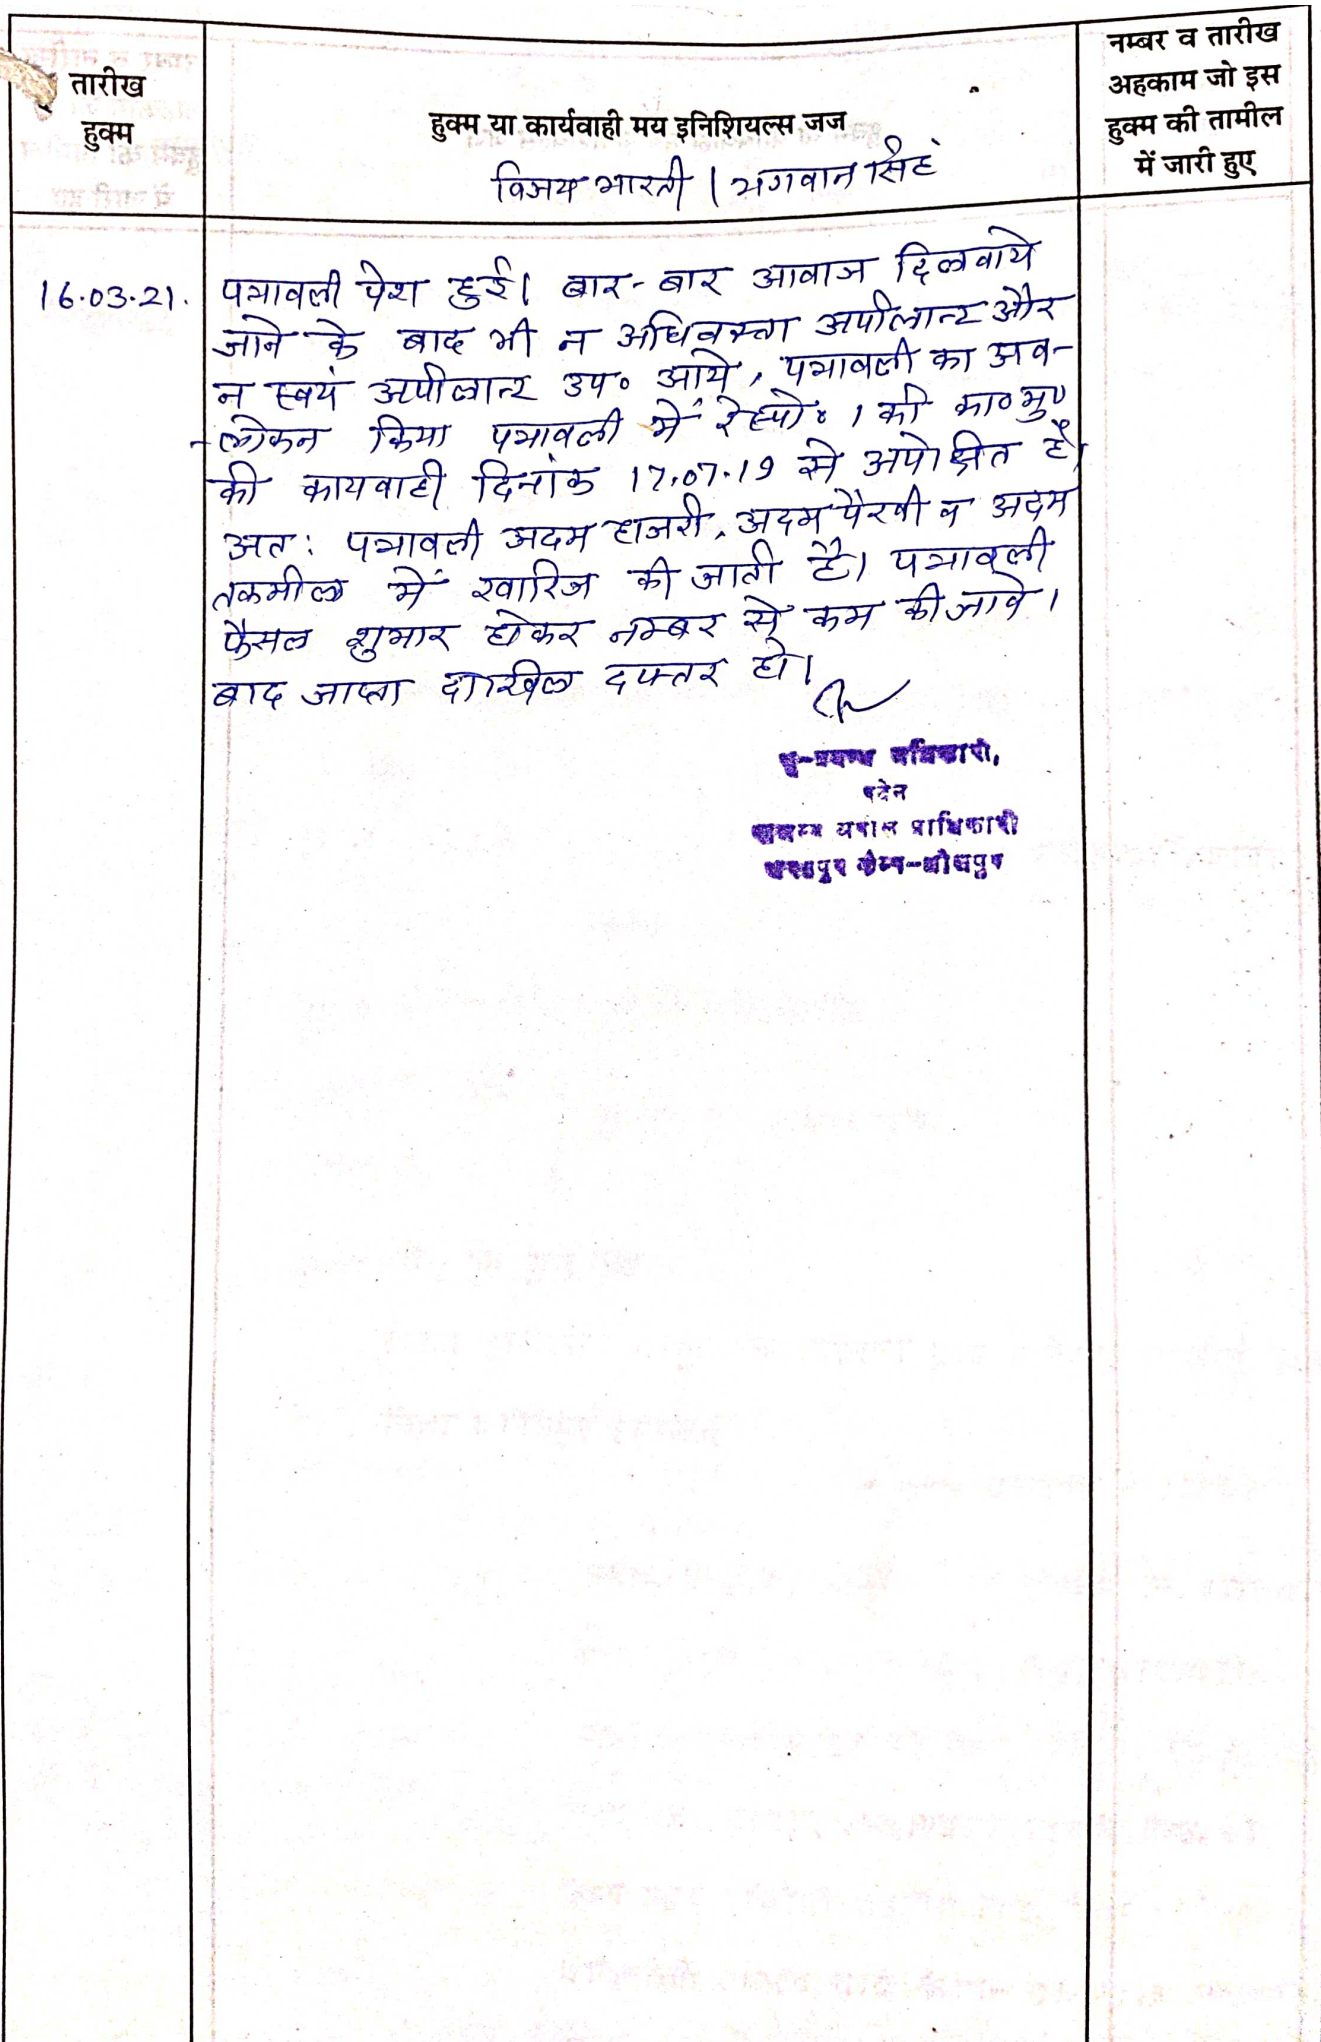 तारीख
हुक्म
हुक्म या कार्यवाही मय इनिशियल्स जज
नम्बर व तारीख
अहकाम जो इस
हुक्म की तामील
में जारी हुए
विजय भारती / भगवान सिहं
16.03.21. पत्रावली पेश हुई। बार-बार आवाज दिलवाये
जाने के बाद भी न अधिवक्ता अपीलान्ट और
न स्वयं अपीलान्ट उप० आये, पत्रावली का अव-
-लोकन किया पत्रावली में रेस्पो० 1 की का०मु०
की कायवाही दिनांक 17.07.19 से अपेक्षित है।
अत: पत्रावली अदम हाजरी, अदम पैरवी व अदम
तकमील में खारिज की जाती है। पत्रावली
फैसल शुमार होकर नम्बर से कम की जावे।
बाद जाप्ता दाखिल दफ्तर हो।
भू-प्रबन्ध अधिकारी,
पदेन
राजस्व अपील प्राधिकारी
भरतपुर कैम्प-धौलपुर